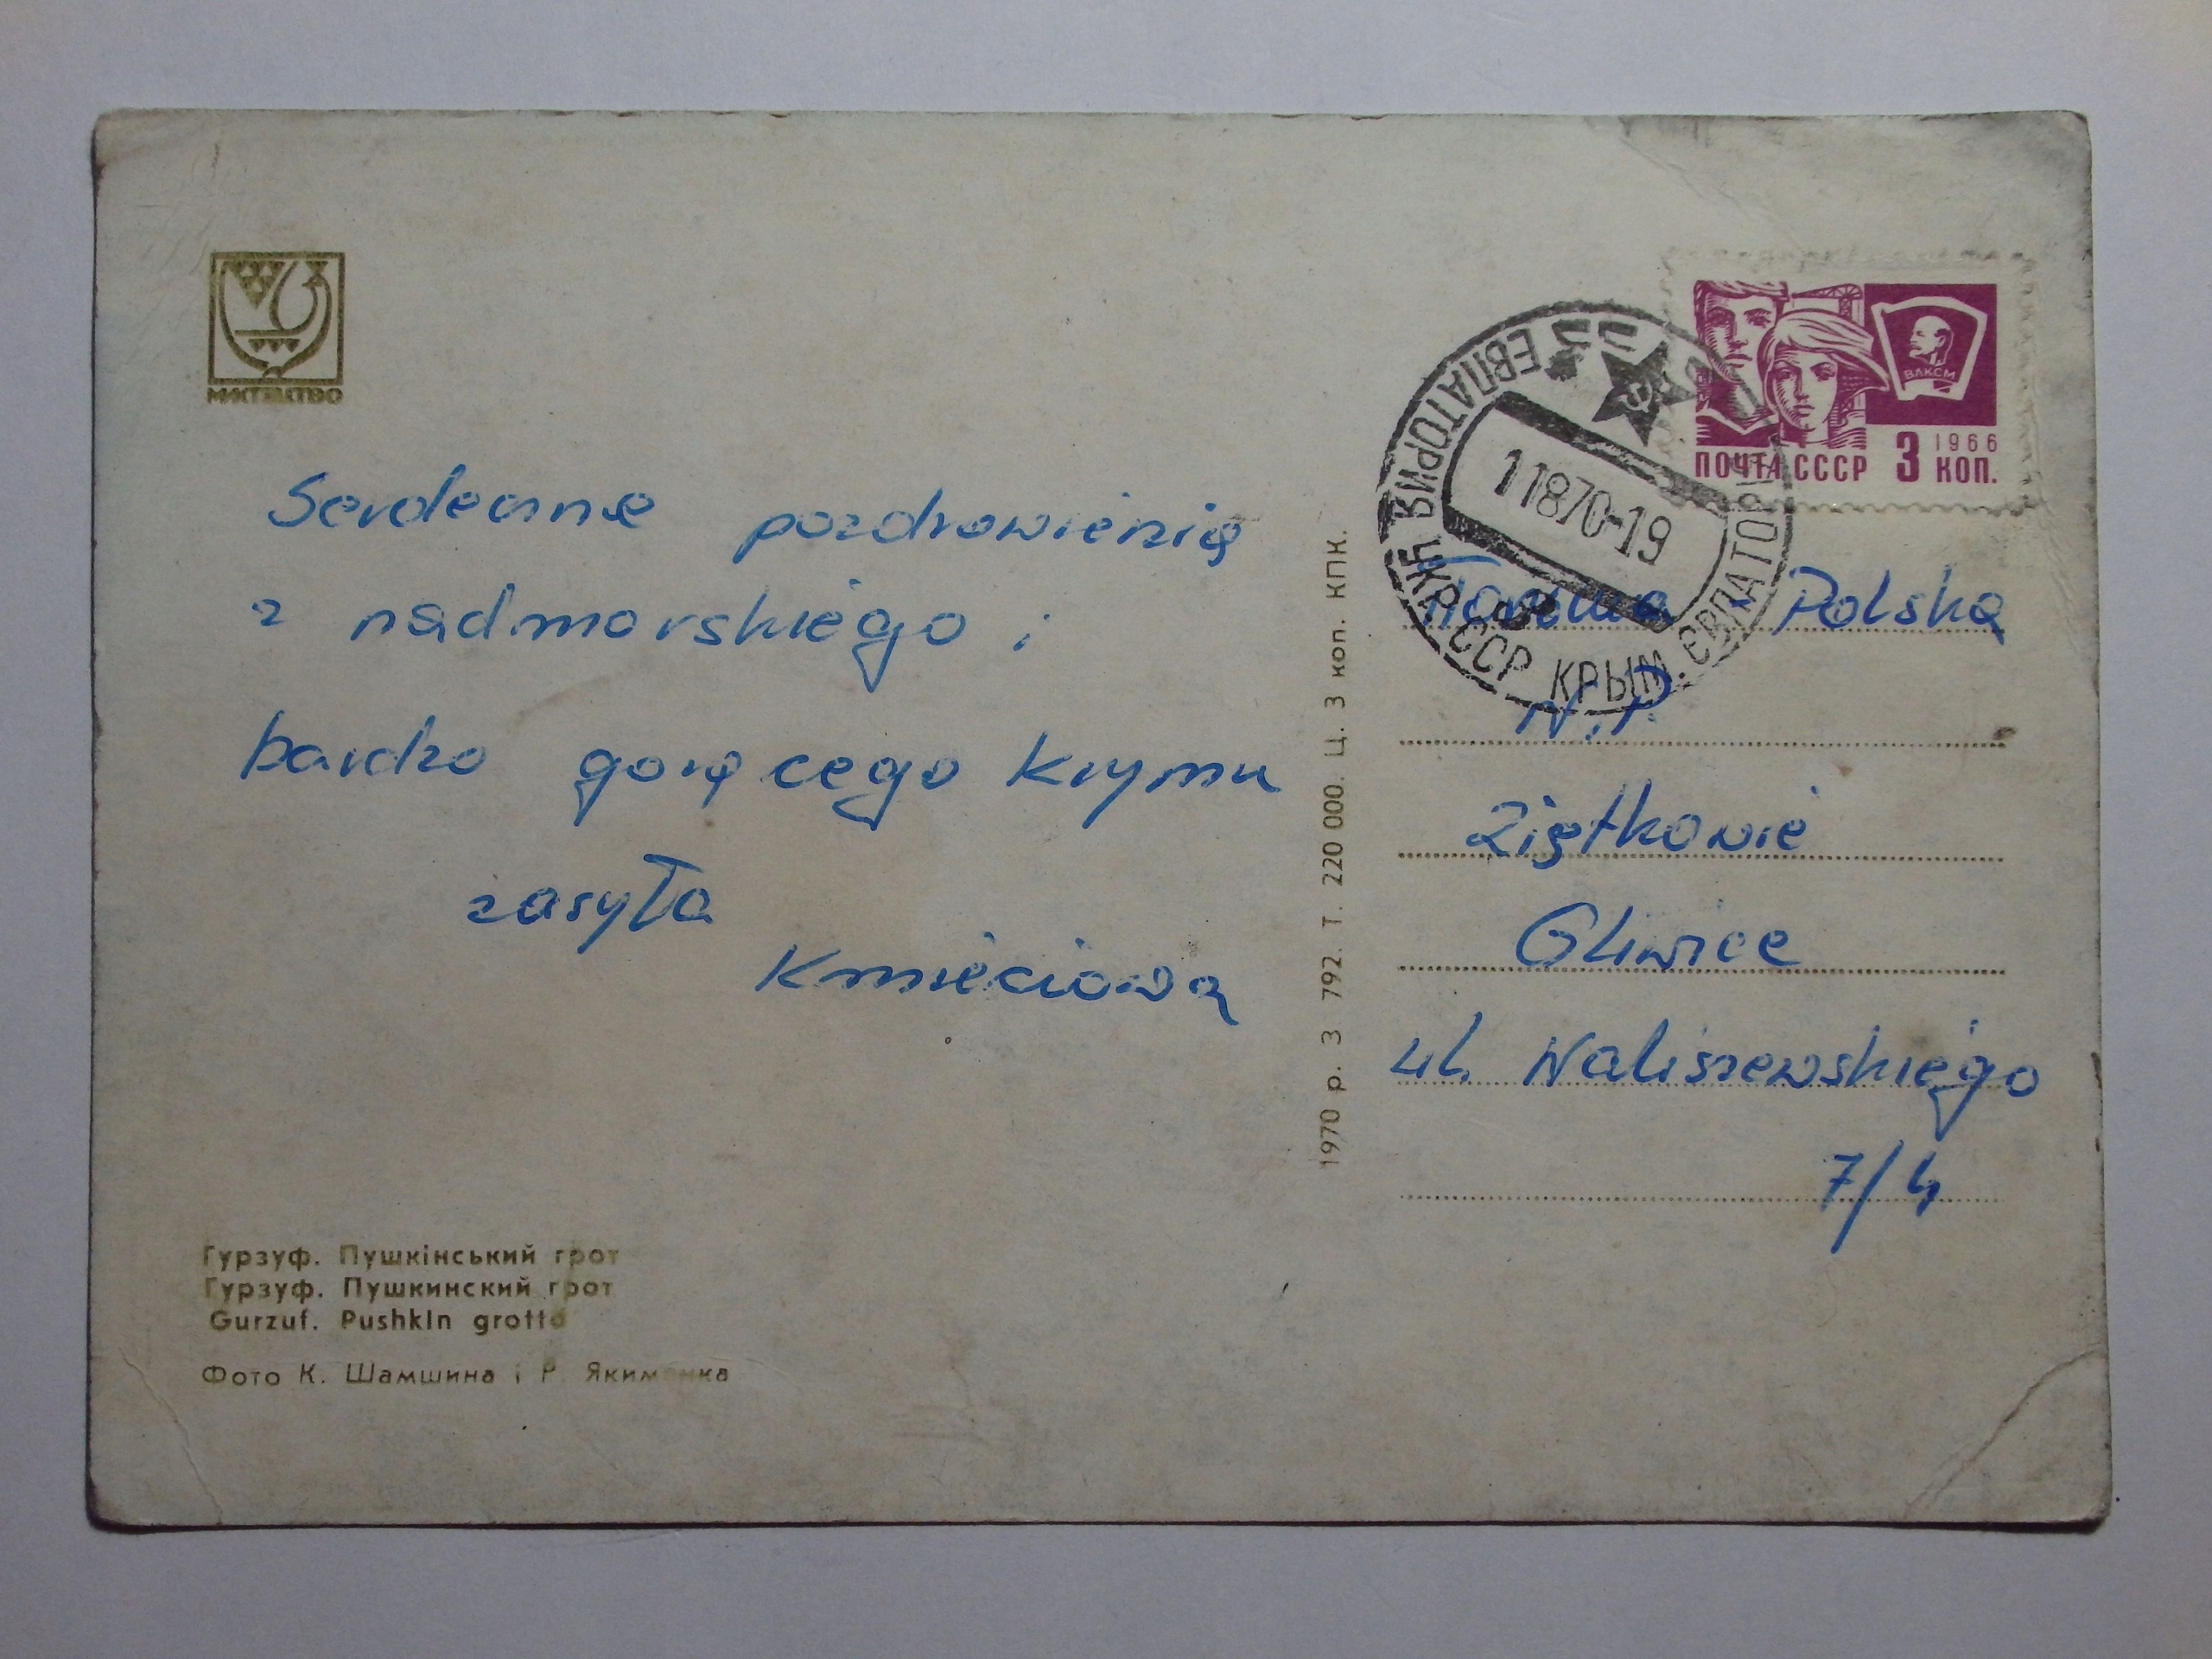 МИСТЕЦТВО
Serdeczne pozdrowienia
z nadmorskiego i
bardzo gorącego Krymu
zasyła
Kmieciowa
Гурзуф. Пушкінський грот
Гурзуф. Пушкинский грот
Gurzuf. Pushkin grotto
Фото К. Шамшина і Р. Якименка
1970 р. З 792. Т. 220 000. Ц. 3 коп. КПК.
ВЛКСМ
1966
ПОЧТА СССР 3 КОП.
ЕВПАТОРИЯ УКР ССР КРЫМ. ЄВПАТОРІ
11870-19
Polska
W.P
Ziętkowie
Gliwice
ul. Waliszewskiego
7/4